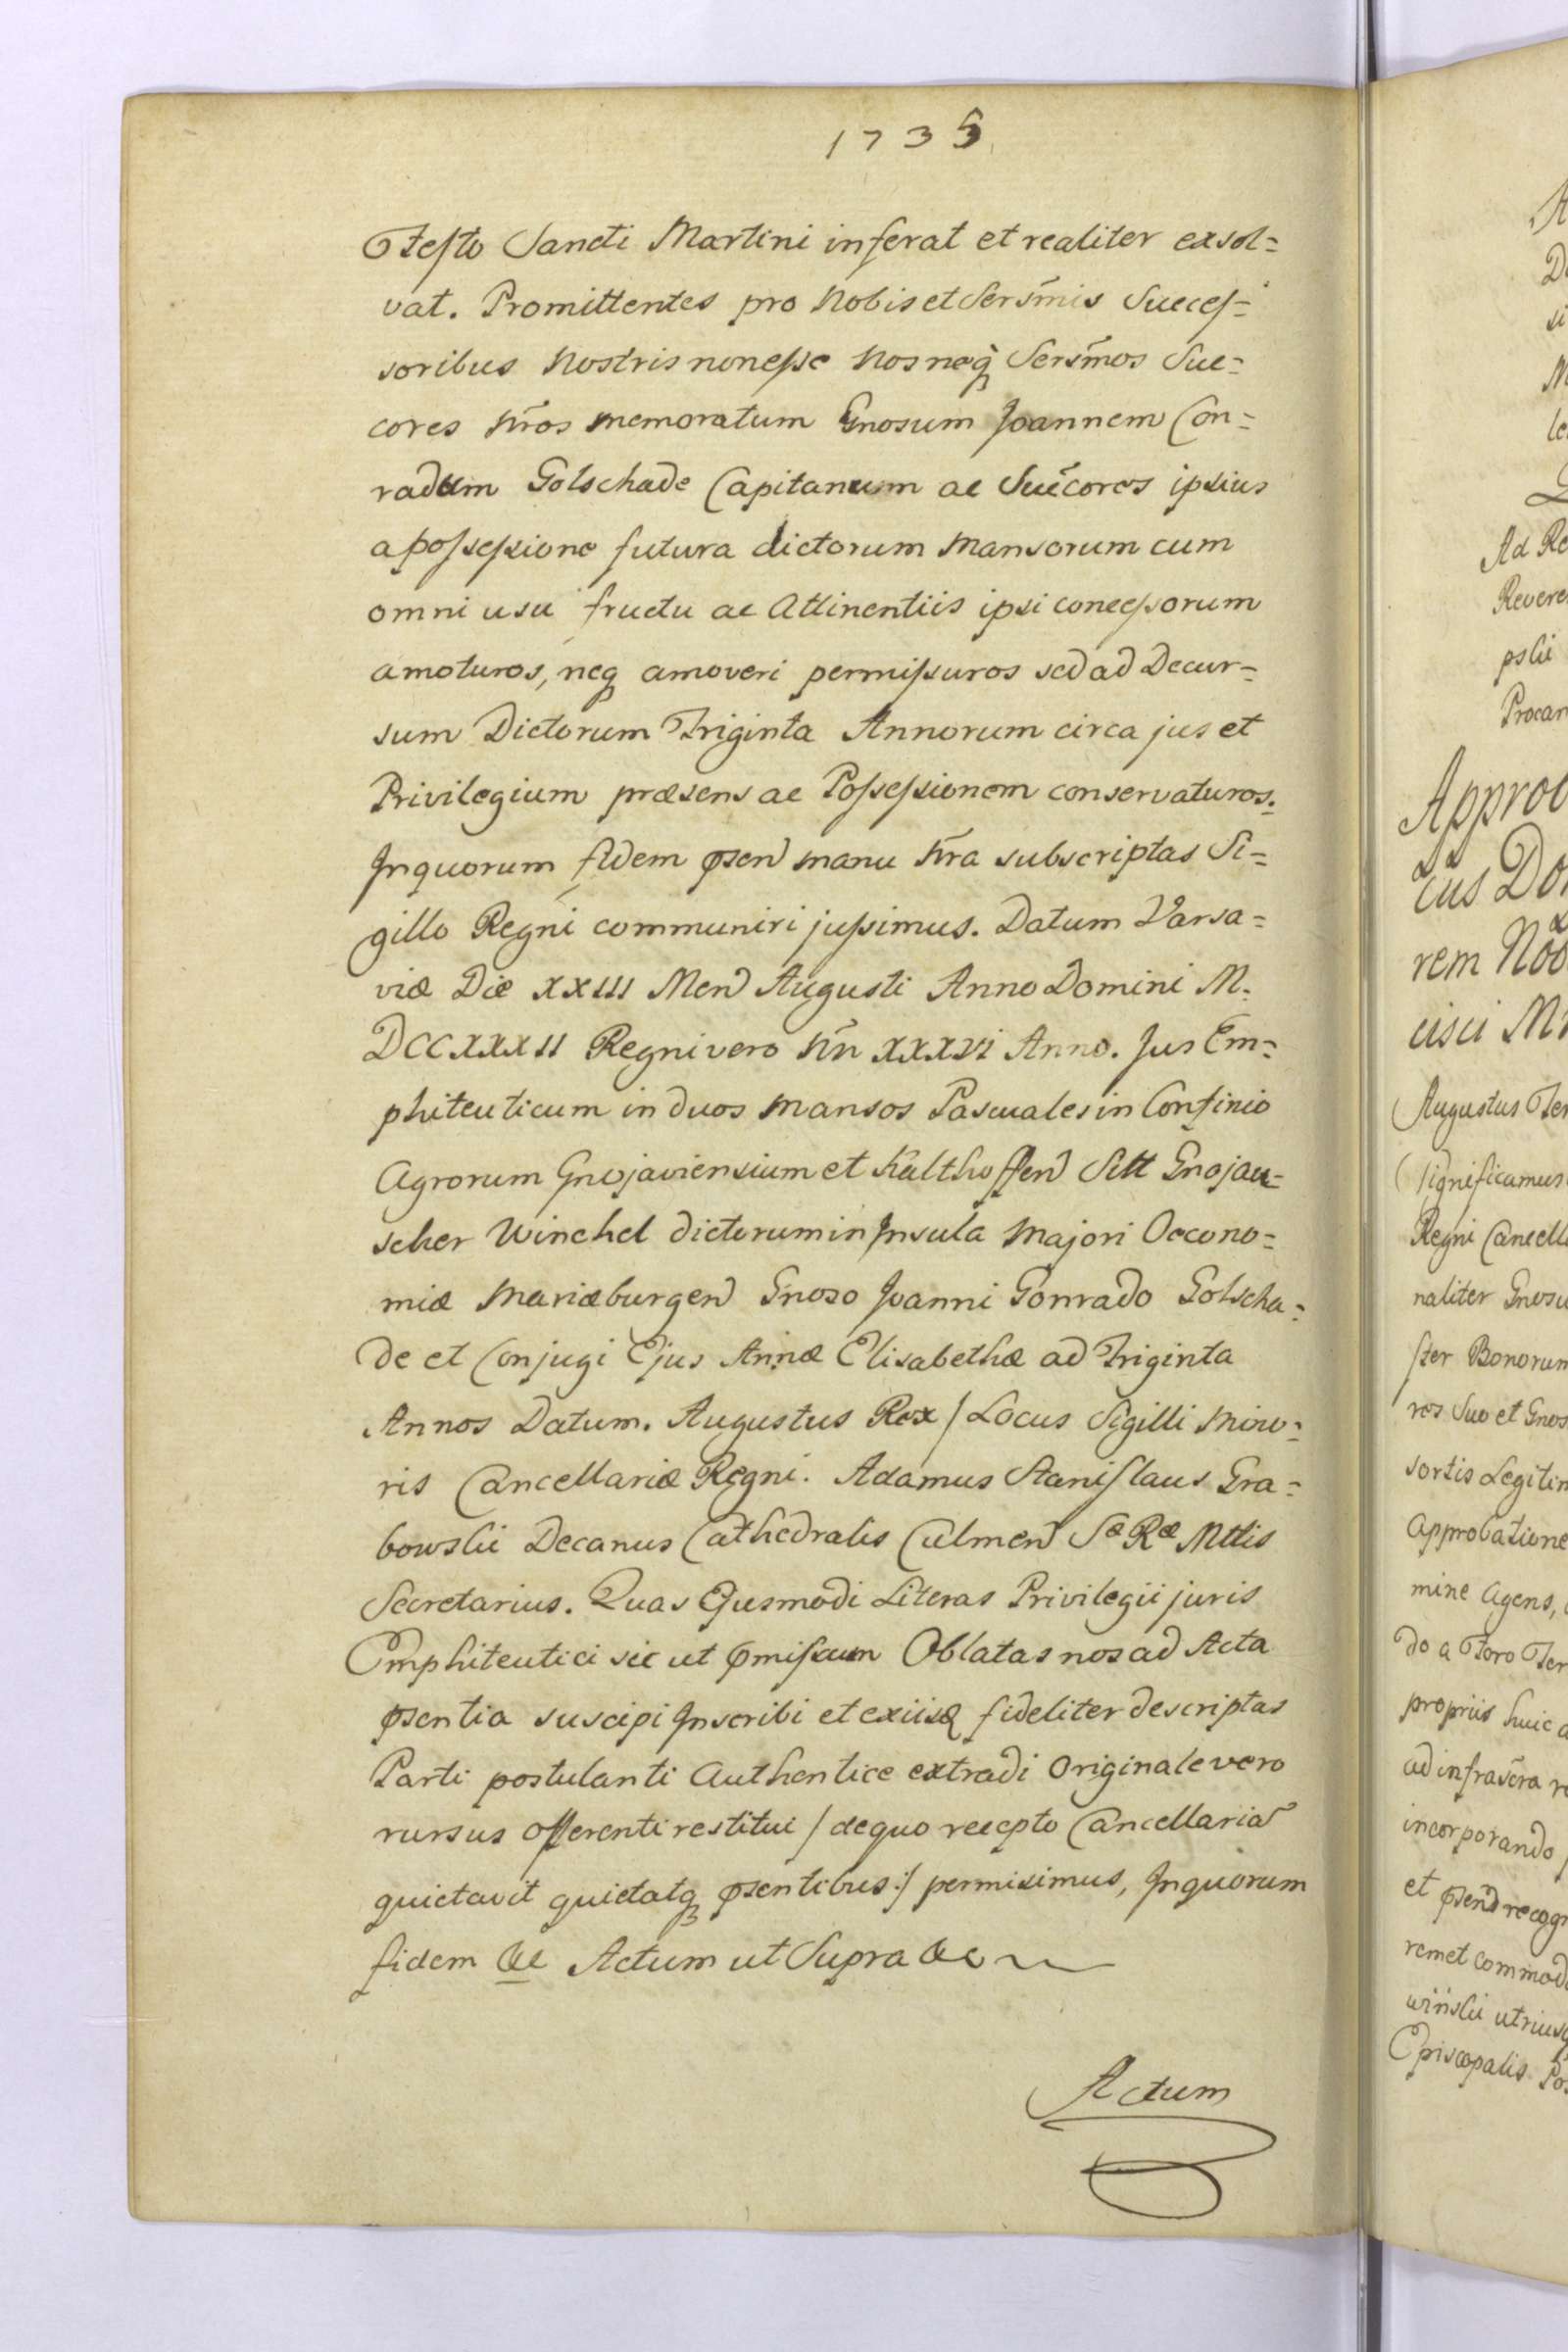 1733
Festo Sancti Martini inferat et realiter exsol=
vat. Promittentes pro Nobis et Sers̃mis Succes=
soribus Nostris non esse Nos neq̃ Sers̃mos Suc=
cores Nr̃os memoratum Gnosum Joannem Con=
radum Golschade Capitaneum ac Suc̃cores ipsius
a possessione futura dictorum Mansorum cum
omni usu fructu ac Attinentiis ipsi concessorum
amoturos, neq amoveri permissuros sed ad Decur=
sum Dictorum Triginta Annorum circa jus et
Privilegium præsens ac Possessionem conservaturos.
In quorum fidem p̃sen manu Nr̃a subscriptas Si=
gillo Regni communiri jussimus. Datum Varsa=
viæ Die XXIII Men Augusti Anno Domini M.
DCCXXXII Regni vero Nr̃i XXXVI Anno. Jus Em=
phiteuticum in duos Mansos Pascuales in Confinio
Agrorum Gnojaviensium et Kalthoffen Sitt Gnojau=
scher Winchel dictorum in Insula Majori Oecono=
miæ Mariæburgen Gnoso Joanni Conrado Golscha=
de et Conjugi Ejus Annæ Elisabethæ ad Triginta
Annos Datum. Augustus Rex / Locus Sigilli Mino=
ris Cancellariæ Regni. Adamus Stanislaus Gra=
bowski Decanus Cathedralis Culmen Sæ Ræ Mttis
Secretarius. Quas Ejusmodi Literas Privilegii juris
Emphiteutici sic ut p̃missum Oblatas nos ad Acta
p̃sentia suscipi Inscribi et exiisq fideliter descriptas
Parti postulanti Authentice extradi Originale vero
rursus offerenti restitui / de quo recepto Cancellariã
quietavit quietatq p̃sentibus :/ permisimus, In quorum
fidem &c Actum ut Supra &c
Actum
Ad Re
Revere
pski
Procan
Approb
cus Do
rem Nob
cisci M
Augustus Ter
Significamus
Regni Cancell
naliter Gnosu
ster Bonorum
ros Suo et Gnos
sortis Legitim
Approbatione
mine Agens,
do a Foro Ter
propriis huic a
ad infrascr̃a re
incorporando
et p̃sen recogn
rem et commod
wiński utriusq
Episcopalis Pos